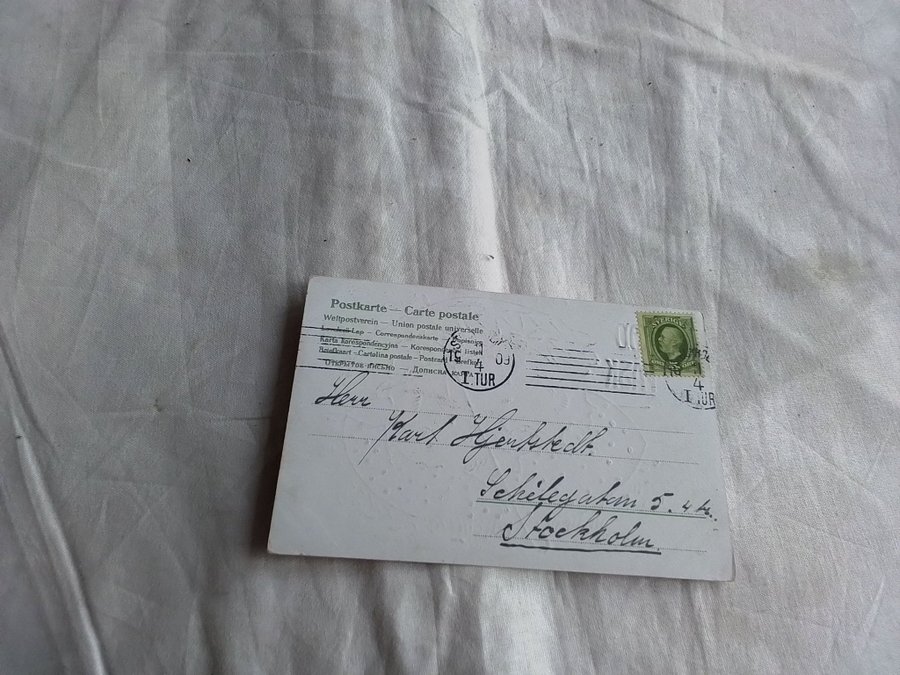 Postkarte — Carte postale
Weltpostverein — Union postale universelle
Levelező-Lap — Correspondenzkarte
Karta korespondencyjna — Korespondenční lístek
Briefkaart — Cartolina postale
Открытое письмо — Дописна
SVERIGE
15
4
09
1. TUR
4
1 TUR
Herr
Karl Hjertstedt.
5. 4 tr.
Stockholm.